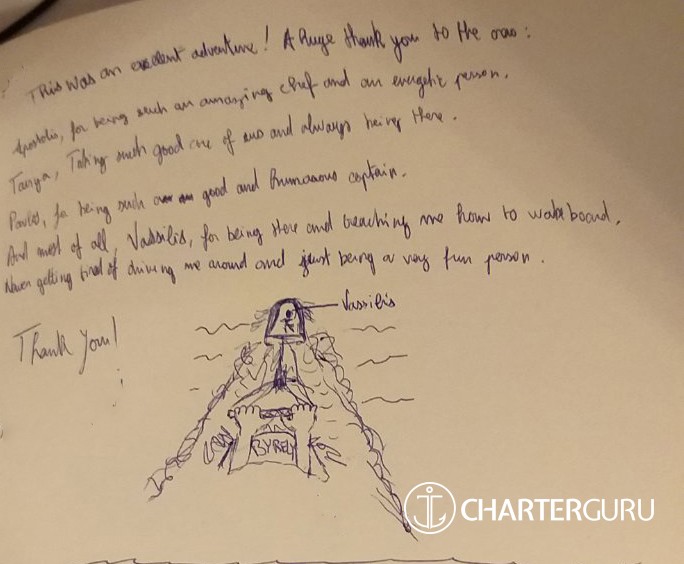 This was an excelent adventure! A huge thank you to the crew:
Apostolis, for being such an amazing chef and an energetic person.
Tanya, Taking such good care of us and always being there.
Pavlos, for being such a good and humorous captain.
And most of all, Vassilis, for being there and teaching me how to wakeboard,
Never getting tired of driving me around and just being a very fun person.
Thank you!
Vassilis
CHARTERGURU